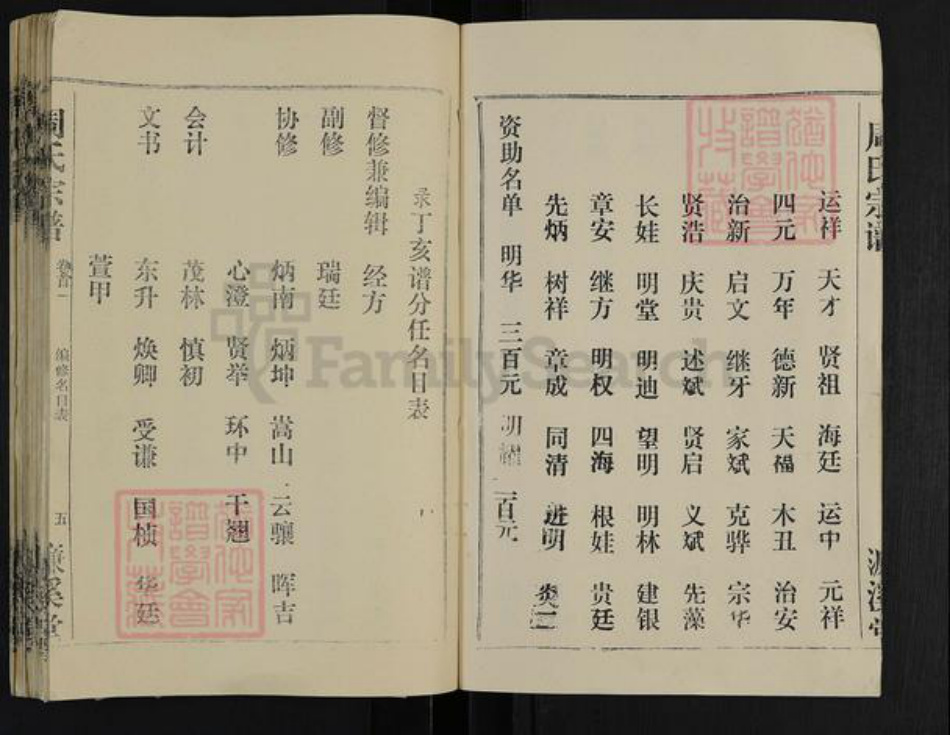 周氏宗谱
濂溪堂
运祥 天才 贤祖 海廷 运中 元祥
四元 万年 德新 天福 木丑 治安
治新 启文 继牙 家斌 克骅 宗华
贤浩 庆贵 述斌 贤启 义斌 先藻
长娃 明堂 明迪 望明 明林 建银
章安 继方 明权 四海 根娃 贵廷
先炳 树祥 章成 同清 进明
资助名单 明华 三百元 明耀 二百元
录丁亥谱分任名目表
督修兼编辑 经方
副修 瑞廷
协修 炳南 炳坤 嵩山 云骧 晖吉
心澄 贤举 环中 干翘
会计 茂林 慎初
文书 东升 焕卿 受谦 国桢 华廷
萱甲
周氏宗谱 卷首一 编修名目表 五 濂溪堂
FamilySearch